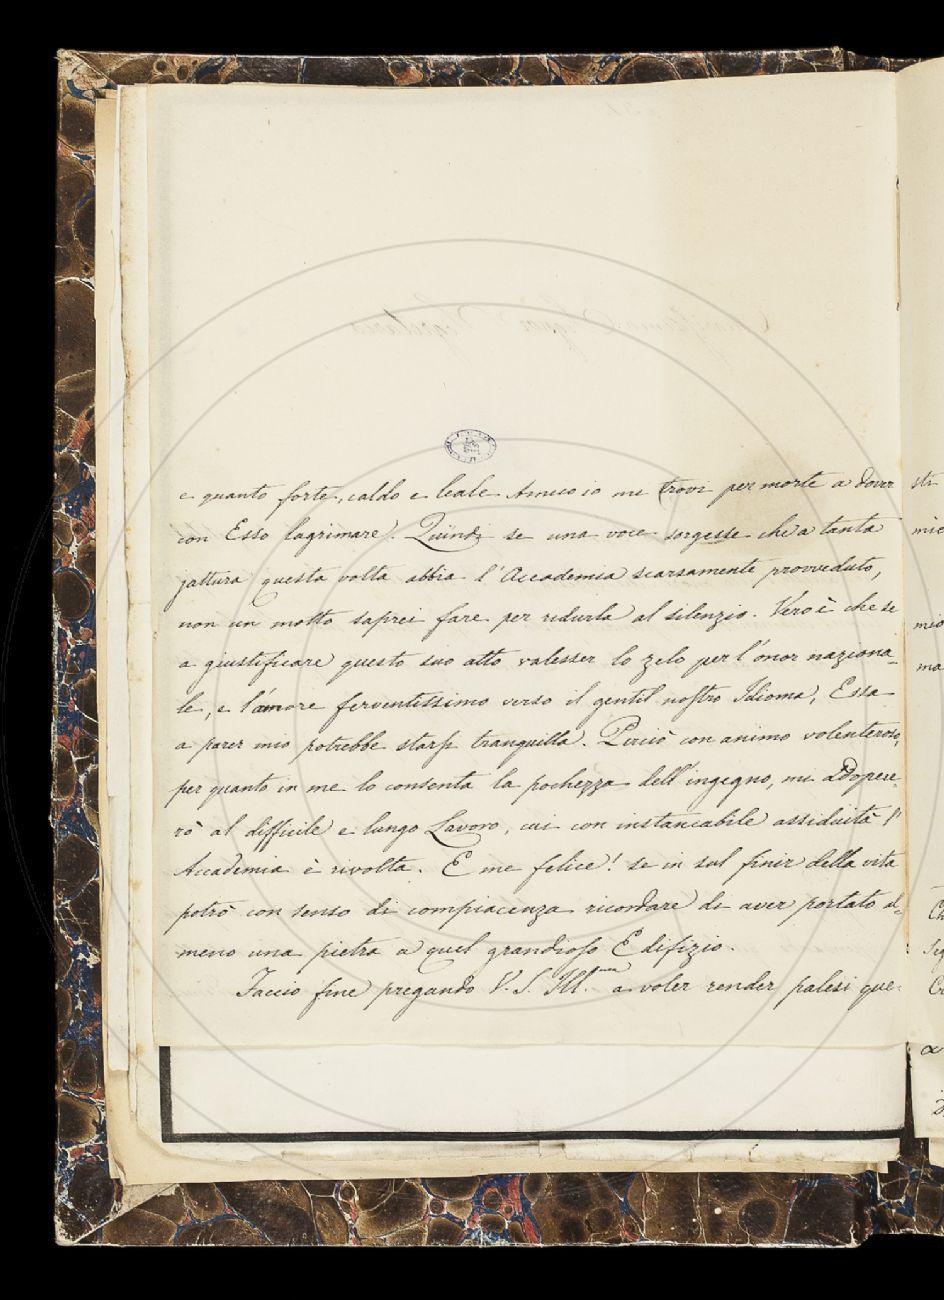 e quanto forte, caldo e leale Amico io mi trovi per morte a dover
con Esso lagrimare). Quindi se una voce sorgesse che a tanta
jattura questa volta abbia l'Accademia scarsamente provveduto,
non un motto saprei fare per ridurla al silenzio. Vero è che se
a giustificare questo suo atto valesser lo zelo per l'onor naziona-
le, e l'amore ferventissimo verso il gentil nostro Idioma, Essa
a parer mio potrebbe starsi tranquilla. Perciò con animo volenteroso,
per quanto in me lo consenta la pochezza dell'ingegno, mi adopere-
rò al difficile e lungo Lavoro, cui con instancabile assiduità l'
Accademia è rivolta. E me felice! se in sul finir della vita
potrò con senso di compiacenza ricordare di aver portato al-
meno una pietra a quel grandioso Edifizio.
Faccio fine pregando V. S. Ill.ma a voler render palesi que-